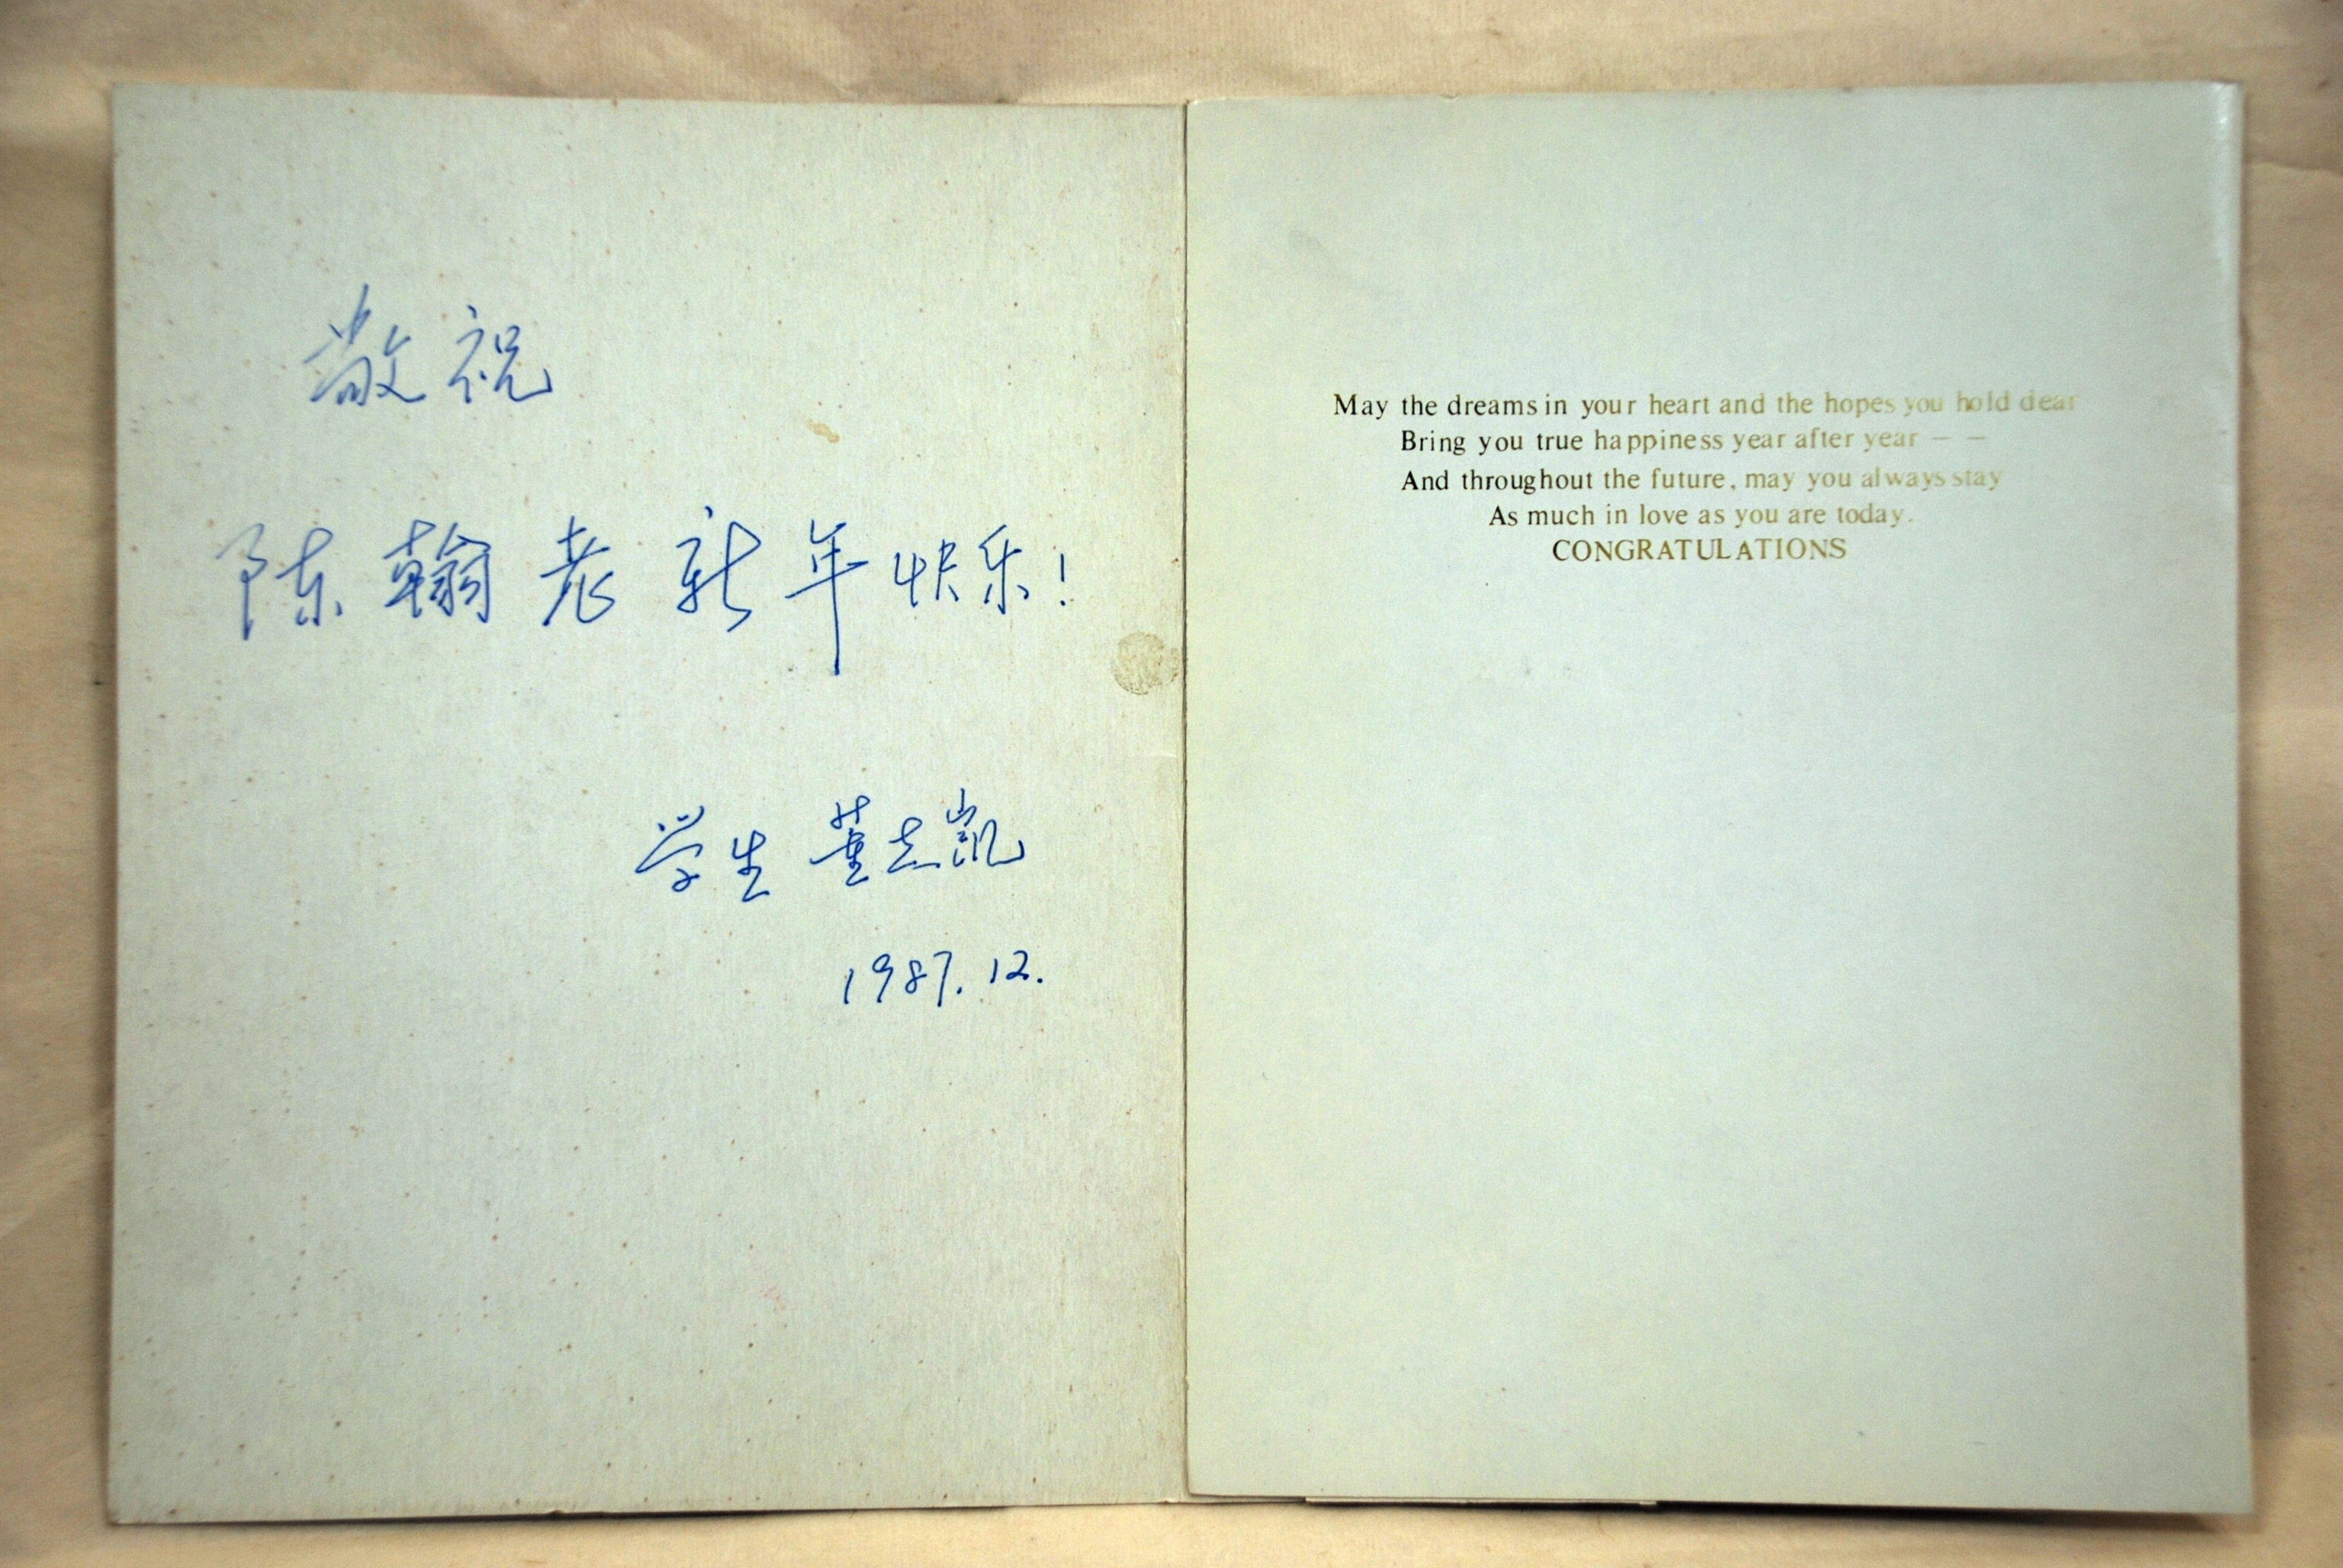 敬祝
陈翰老新年快乐!
学生 董志凯
1987.12.
May the dreams in your heart and the hopes you hold dear
Bring you true happiness year after year — —
And throughout the future, may you always stay
As much in love as you are today.
CONGRATULATIONS